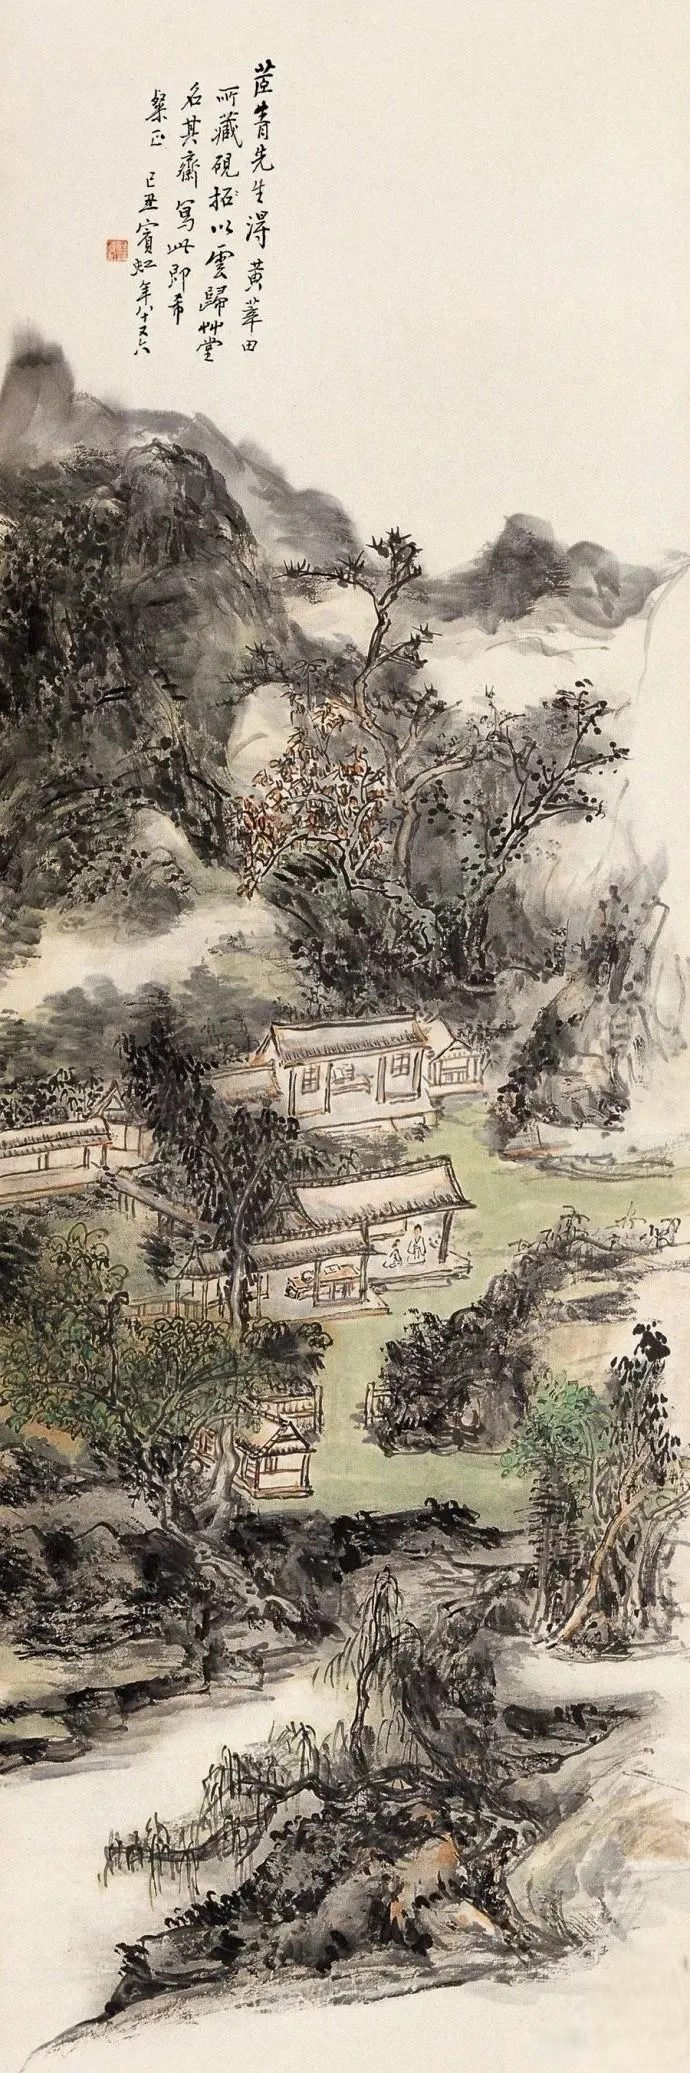 茝青先生得黃莘田
所藏硯拓以雲歸艸堂
名其齋寫此即希
粲正 己丑賓虹年八十又六